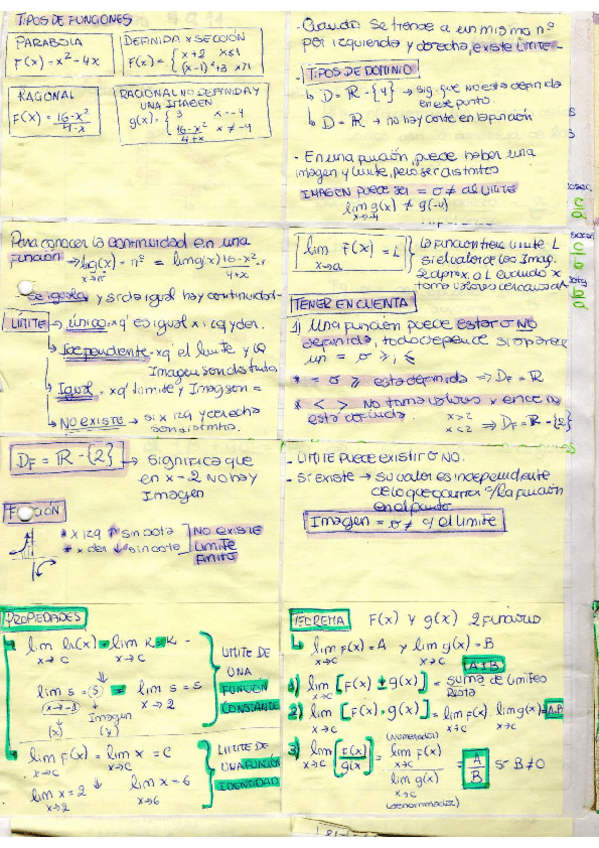 TIPOS DE FUNCIONES
PARABOLA
F(x) = x² - 4x
DEFINIDA X SECCIÓN
F(x) = { x+2 x≤1
(x-1)²+3 x>1
RACIONAL
F(x) = 16-x² / 4-x
RACIONAL NO DEFINIDA Y
UNA IMAGEN
g(x) = { 3 x = -4
16-x² / 4+x x ≠ -4
- Cuando se tiende a un mismo nº
por izquierda y derecha, existe Límite
- TIPOS DE DOMINIO
↳ D = ℝ - {4} → sig. que no esta definida
en ese punto.
↳ D = ℝ → no hay corte en la función
- En una función, puede haber una
imagen y límite, pero ser distintos
IMAGEN PUEDE SER = o ≠ al LIMITE
lim g(x) ≠ g(-4)
x→-4
Para conocer la continuidad en una
función → g(x) = nº = lim g(x) 16-x² / 4+x
- se iguala y si da igual hay continuidad -
LÍMITE → único: xq' es igual x izq y der.
↳ Independiente: xq' el limite y la
Imagen son distintos
↳ Igual = xq' Limite y Imagen =
↳ NO EXISTE → si x izq y derecha
son distintos.
lim F(x) = L
x→a
La función tiene limite L
si el valor de las Imag.
se aprox. a L cuando x
toma valores cercanos a
TENER EN CUENTA
1) Una función puede estar o NO
definida, todo depende si aparece
un = o ≥, ≤
* = o ≥ esta definida ⇒ DF = ℝ
* < > No toma valores x ende no
esta definida. x>2
x<2 ⇒ DF = ℝ - {2}
DF = ℝ - {2} → significa que
en x = 2 No hay
Imagen
* x izq ↑ sin cota
* x der ↓ sin cota
NO EXISTE
LIMITE
FINITO
- LIMITE PUEDE EXISTIR O NO.
- SI EXISTE → su valor es independiente
de lo que ocurra c/ la función
en el punto.
Imagen = o ≠ c/ el limite
PROPIEDADES
lim h(x) = lim K = K
x→c x→c
lim 5 = 5 = lim 5 = 5
x→-3 x→2
Imagen
(x) (y)
LIMITE DE
UNA
FUNCIÓN
CONSTANTE
lim F(x) = lim x = c
x→c x→c
lim x = 2 lim x = 6
x→2 x→6
LIMITE DE
UNA FUNCIÓN
IDENTIDAD
TEOREMA F(x) y g(x) 2 Funciones
↳ lim F(x) = A y lim g(x) = B
x→c x→c
A ± B
1) lim [F(x) ± g(x)] = suma de limites
x→c Resta
2) lim [F(x) . g(x)] = lim F(x) . lim g(x) = A.B
x→c x→c x→c
(numerador)
3) lim [F(x) / g(x)] = lim F(x) / lim g(x) = A / B si B ≠ 0
x→c x→c x→c
(denominador)